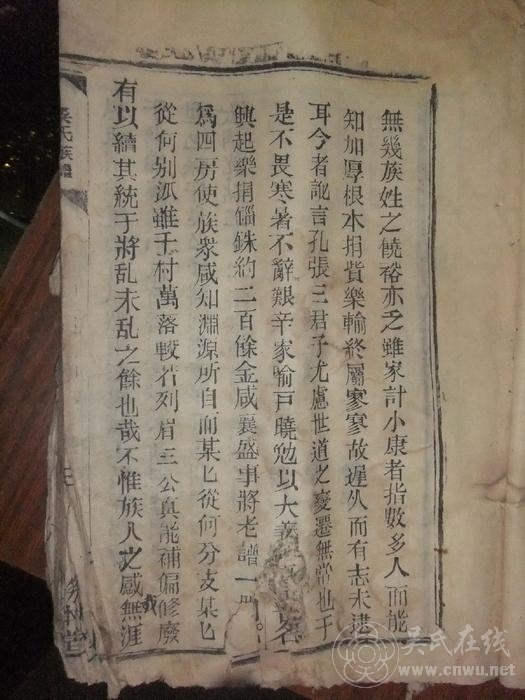 無幾族姓之饒裕亦乏雖家計小康者指數多人而能
知加厚根本捐貲樂輸終屬寥寥故遲久而有志未逮
耳今者訛言孔張三君子尤慮世道之變遷無常也于
是不畏寒暑不辭艱辛家喻戶曉勉以大義
興起樂捐錙銖約二百餘金咸襄盛事將老譜一
爲四房使族衆咸知淵源所自而某匕從何分支某匕
從何别派雖千村萬落較若列眉三公眞能補偏修廢
有以續其統于將乱未乱之餘也哉不惟族人之感無涯
吳氏族譜
吴氏在线
www.cnwu.net